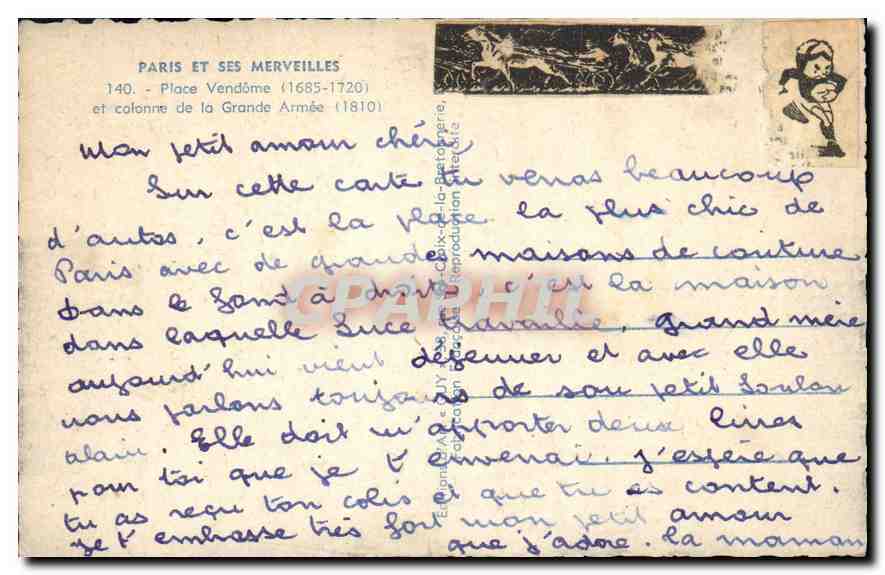 PARIS ET SES MERVEILLES
140. - Place Vendôme (1685-1720)
et colonne de la Grande Armée (1810)
Mon petit amour chéri
Sur cette carte tu verras beaucoup
d'autos, c'est la place la plus chic de
Paris avec de grandes maisons de couture
Dans le fond à droite c'est la maison
dans laquelle Luce travaille. Grand mère
aujourd'hui vient déjeuner et avec elle
nous parlons toujours de son petit
alain. Elle doit m'apporter deux livres
pour toi que je t'enverrai. J'espère que
tu as reçu ton colis et que tu es content.
Je t'embrasse très fort mon petit amour
que j'adore. la maman
CPAPHIL
Croix-de-la-Bretonnerie,
Reproduction interdite